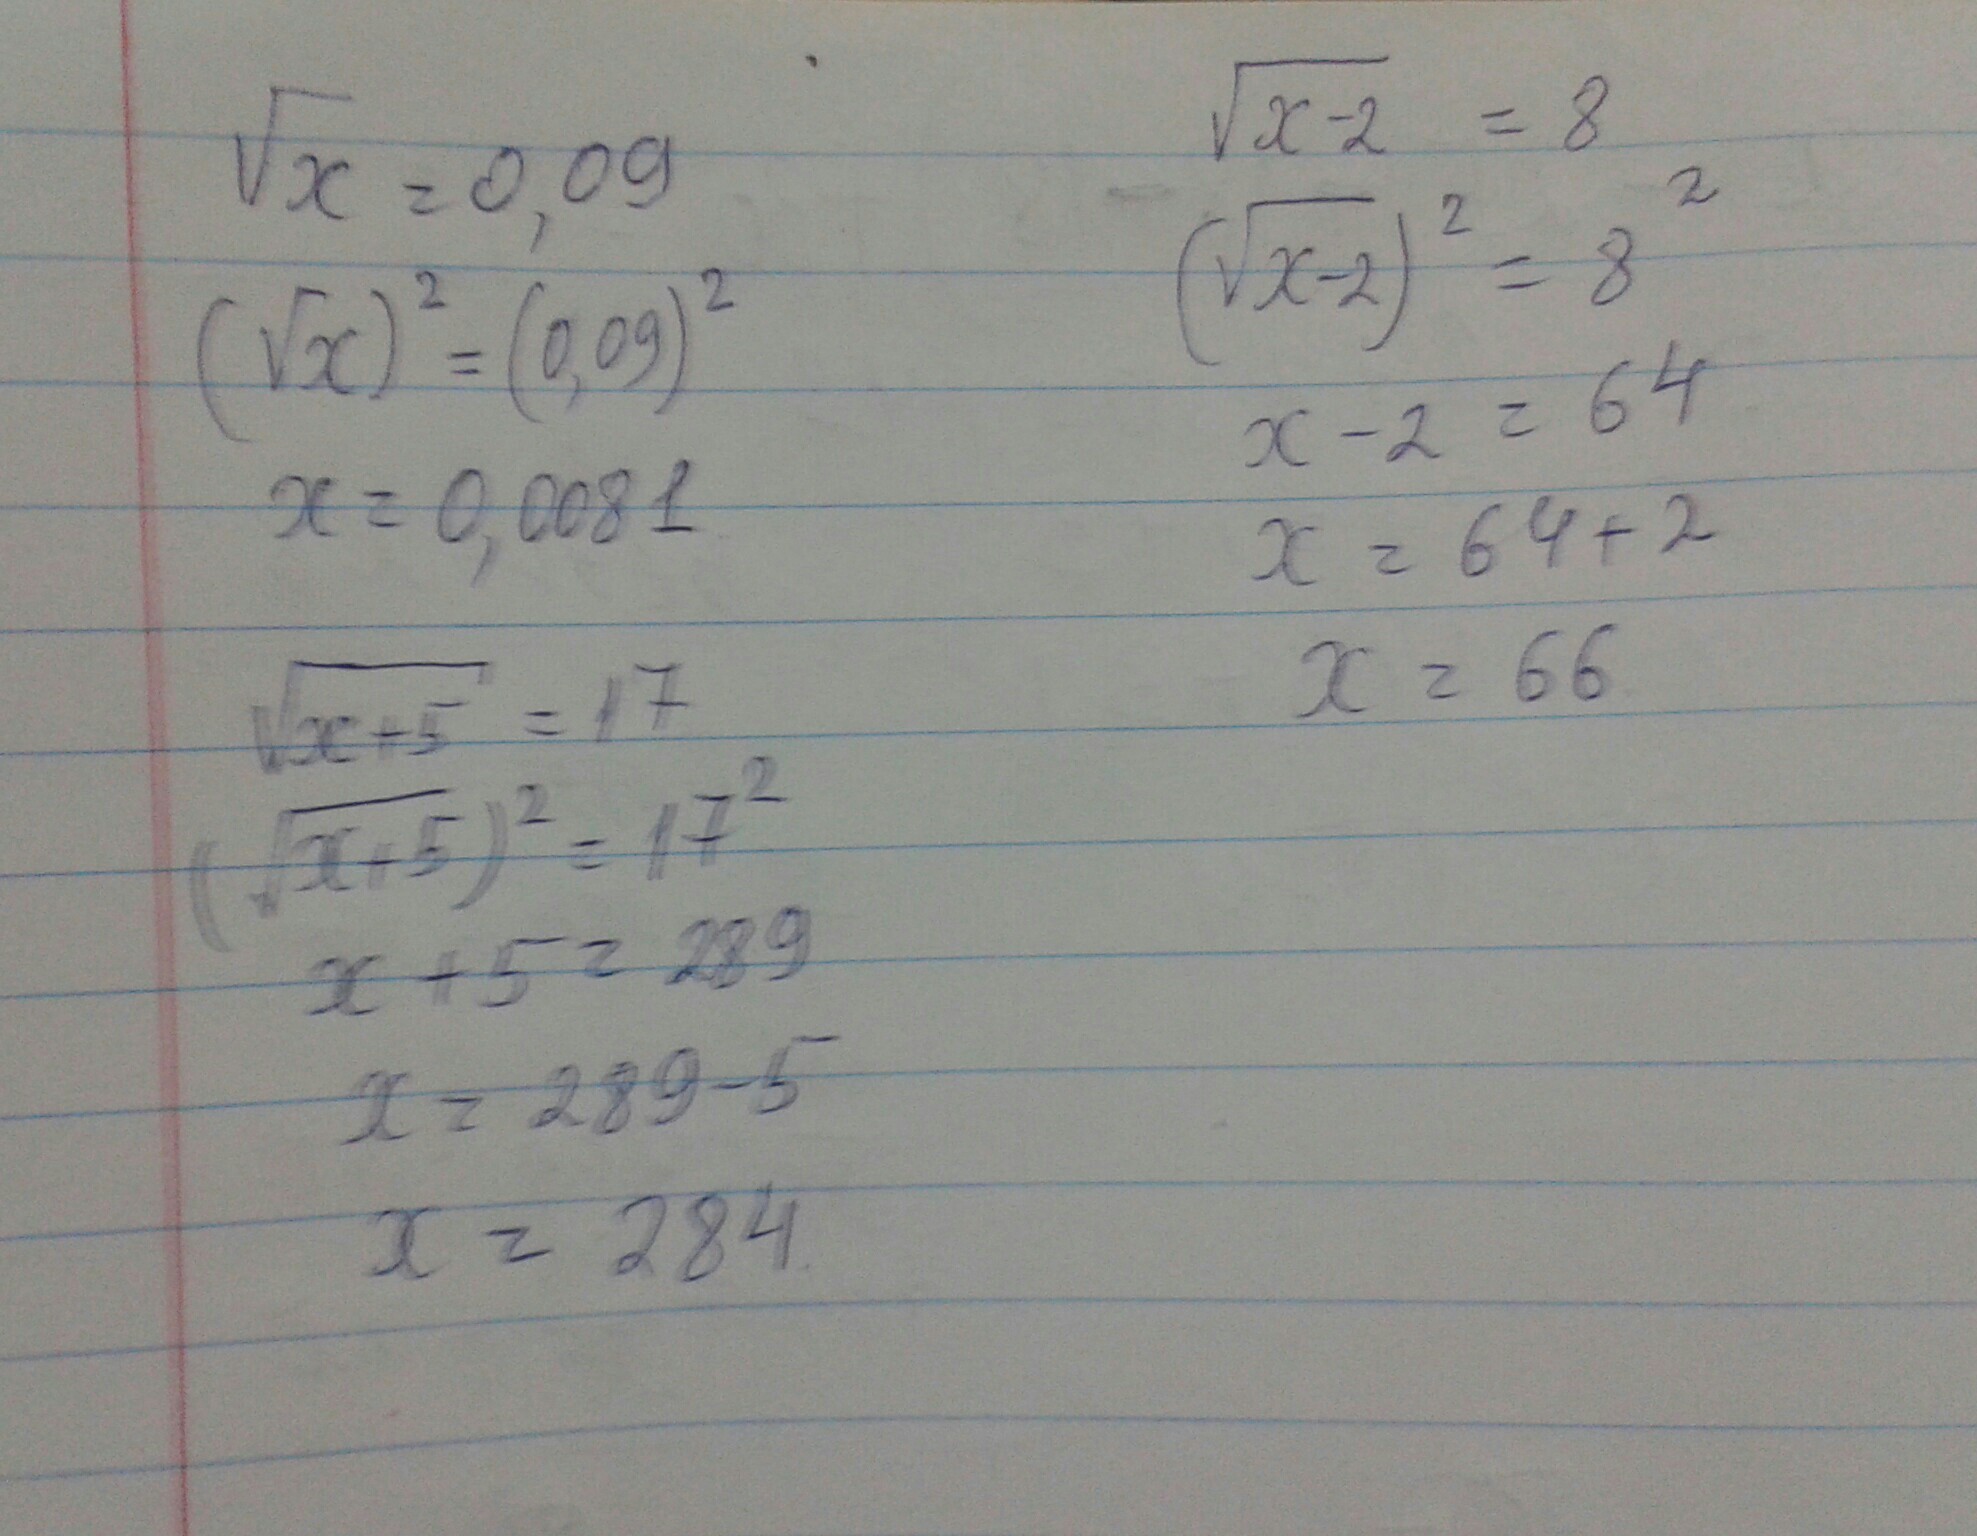 √x = 0,09
(√x)² = (0,09)²
x = 0,0081
√x+5 = 17
(√x+5)² = 17²
x + 5 = 289
x = 289-5
x = 284
√x-2 = 8
(√x-2)² = 8²
x - 2 = 64
x = 64+2
x = 66